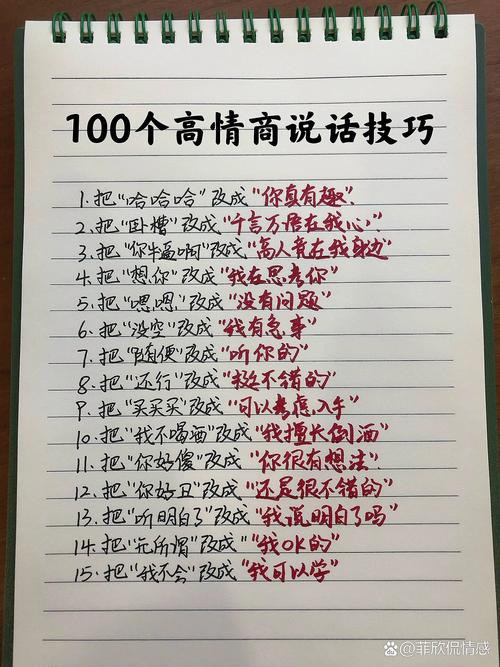 100个高情商说话技巧
1.把"哈哈哈"改成"你真有趣".
2.把"卧槽"改成"千言万语在我心"
3.把"你牛逼啊"改成"高人竟在我身边"
4.把"想你"改成"我在思考你"
5.把"嗯嗯"改成"没有问题"
6.把"没空"改成"我有急事"
7.把"随便"改成"听你的"
8.把"还行"改成"挺不错的"
9.把"买买买"改成"可以考虑入手"
10.把"我不喝酒"改成"我擅长倒酒"
11.把"你好傻"改成"你很有想法".
12.把"你好丑"改成"还是很不错的"
13.把"听明白了"改成"我说明白了吗"
14.把"无所谓"改成""我OK的"
15.把"我不会"改成"我可以学"
@菲欣侃情感